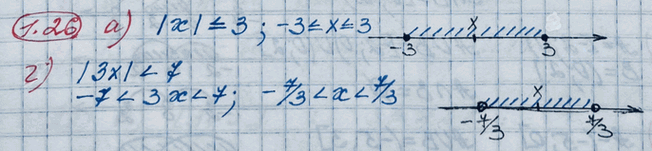 1.26 а) |x| ≤ 3 ; -3 ≤ x ≤ 3
x
-3 3
г) |3x| < 7
-7 < 3x < 7; -7/3 < x < 7/3
x
-7/3 7/3